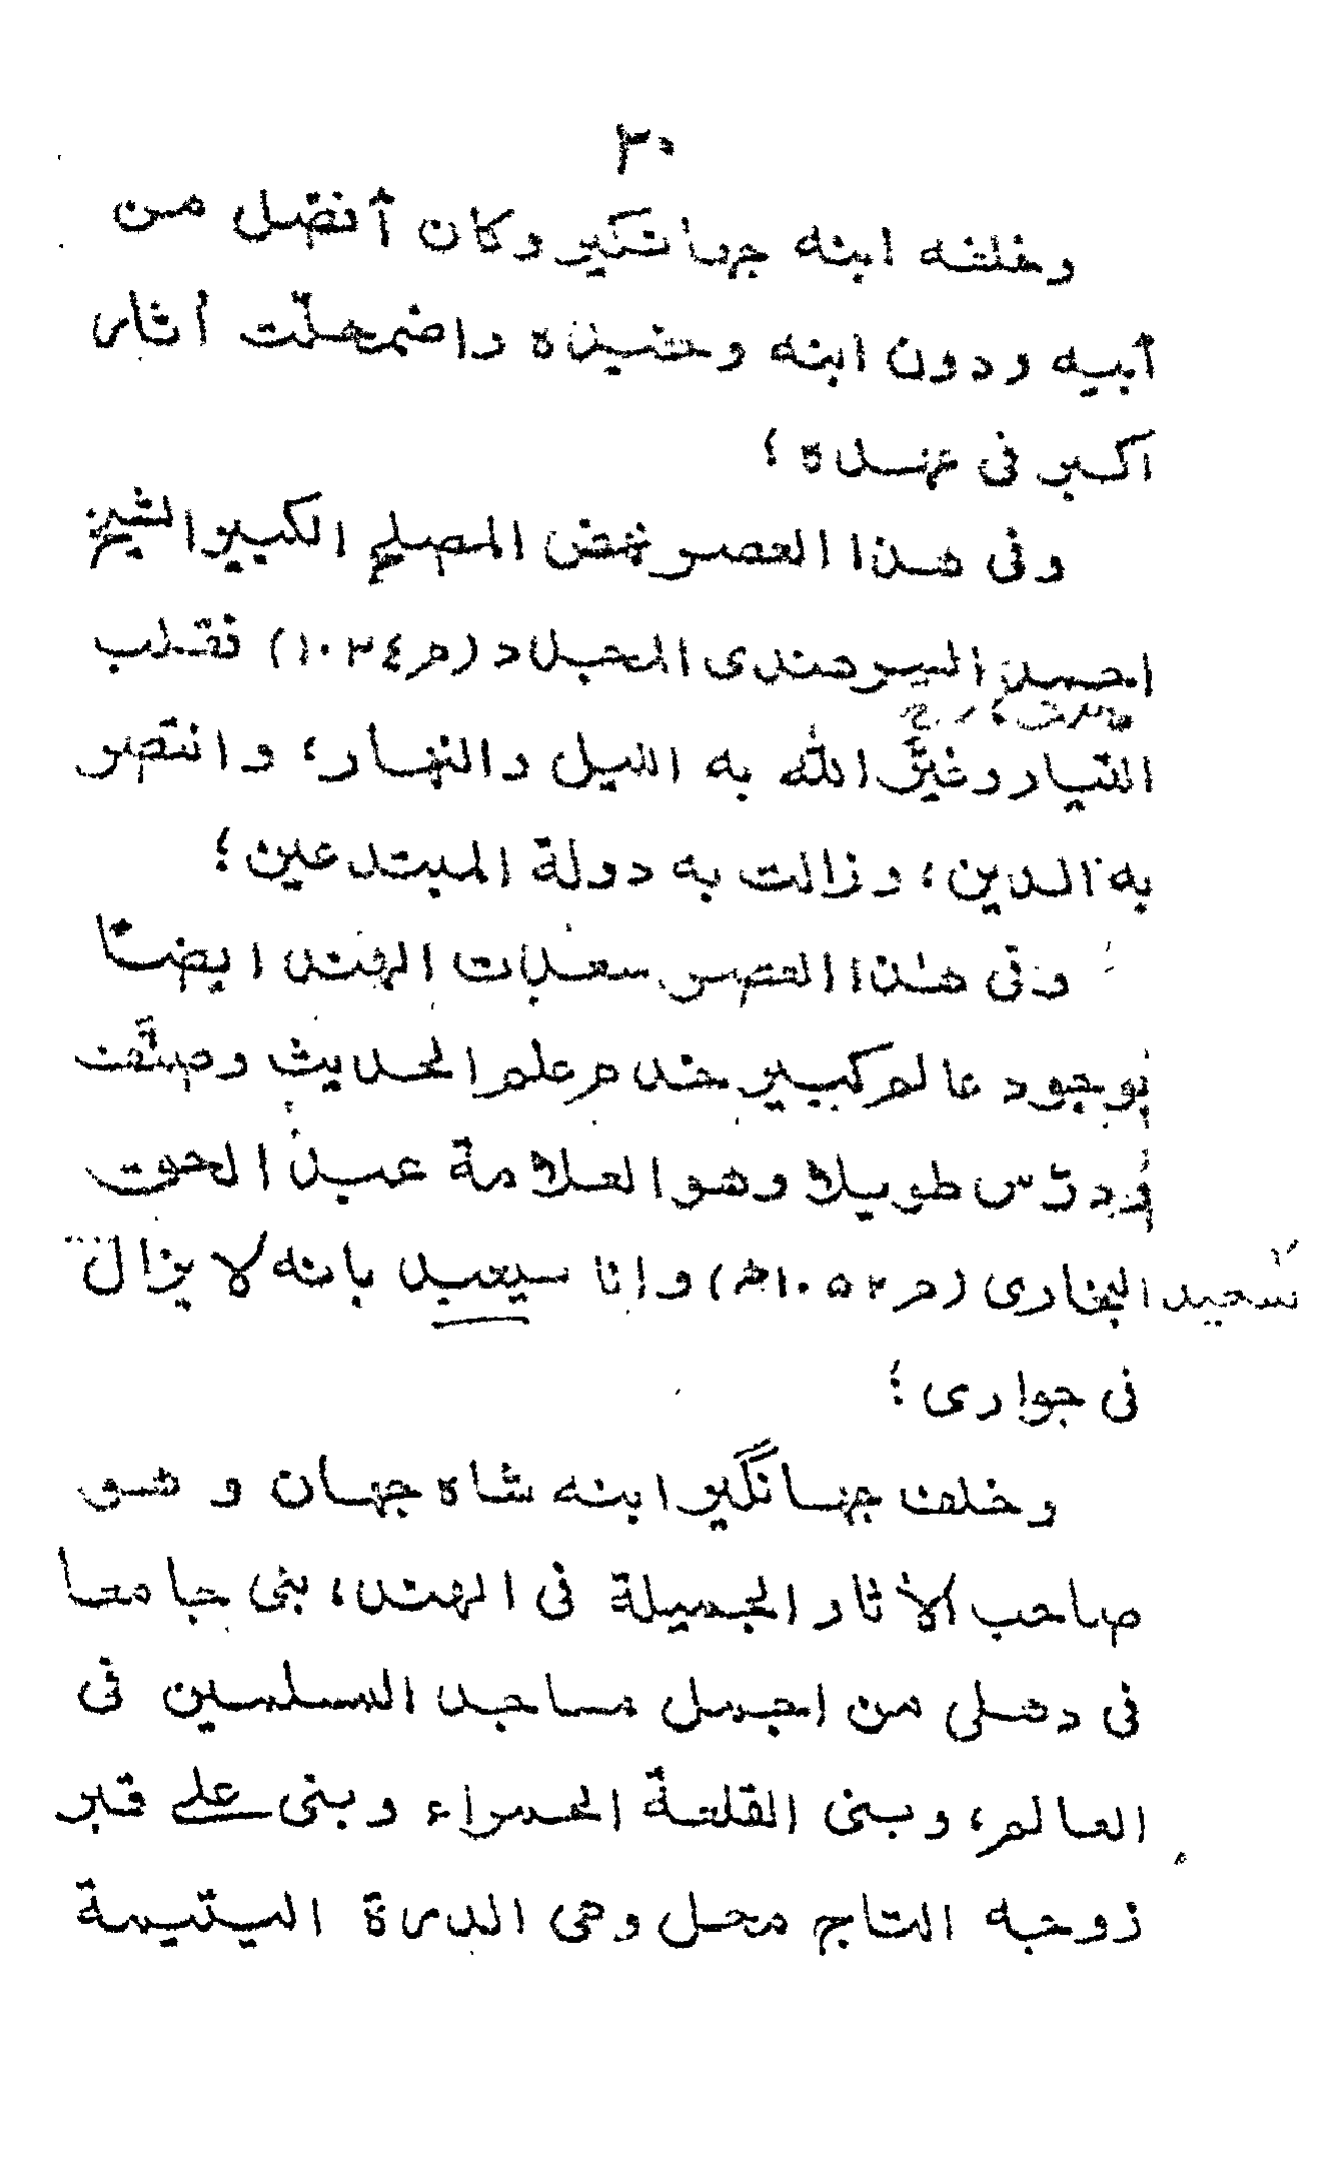 ٣٠
وخلفه ابنه جهانكير وكان أفضل من
أبيه ودون ابنه وحفيده واضمحلّت أثار
اكبر فى عهده ؛
وفى هذا العصر نهض المصلح الكبير الشيخ
احمد السرهندى المجدد (م ١٠٣٤) فقلب
التيار وغيّر الله به الليل والنهار، وانتصر
به الدين، وزالت به دولة المبتدعين ؛
وفى هذا العصر سعدت الهند ايضًا
بوجود عالم كبير خدم علم الحديث وصنّف
ودرّس طويلا وهو العلامة عبد الحق
البخارى (م ١٠٥٢ھ) وانا سعيد بانه لا يزال
سعيد
فى جوارى ؛
وخلف جهانگير ابنه شاه جهان و هو
صاحب الأثار الجميلة فى الهند، بنى جامعا
فى دهلى من اجمل مساجد المسلمين فى
العالم، وبنى القلعة الحمراء وبنى على قبر
زوجه التاج محل وهى الدرة اليتيمة